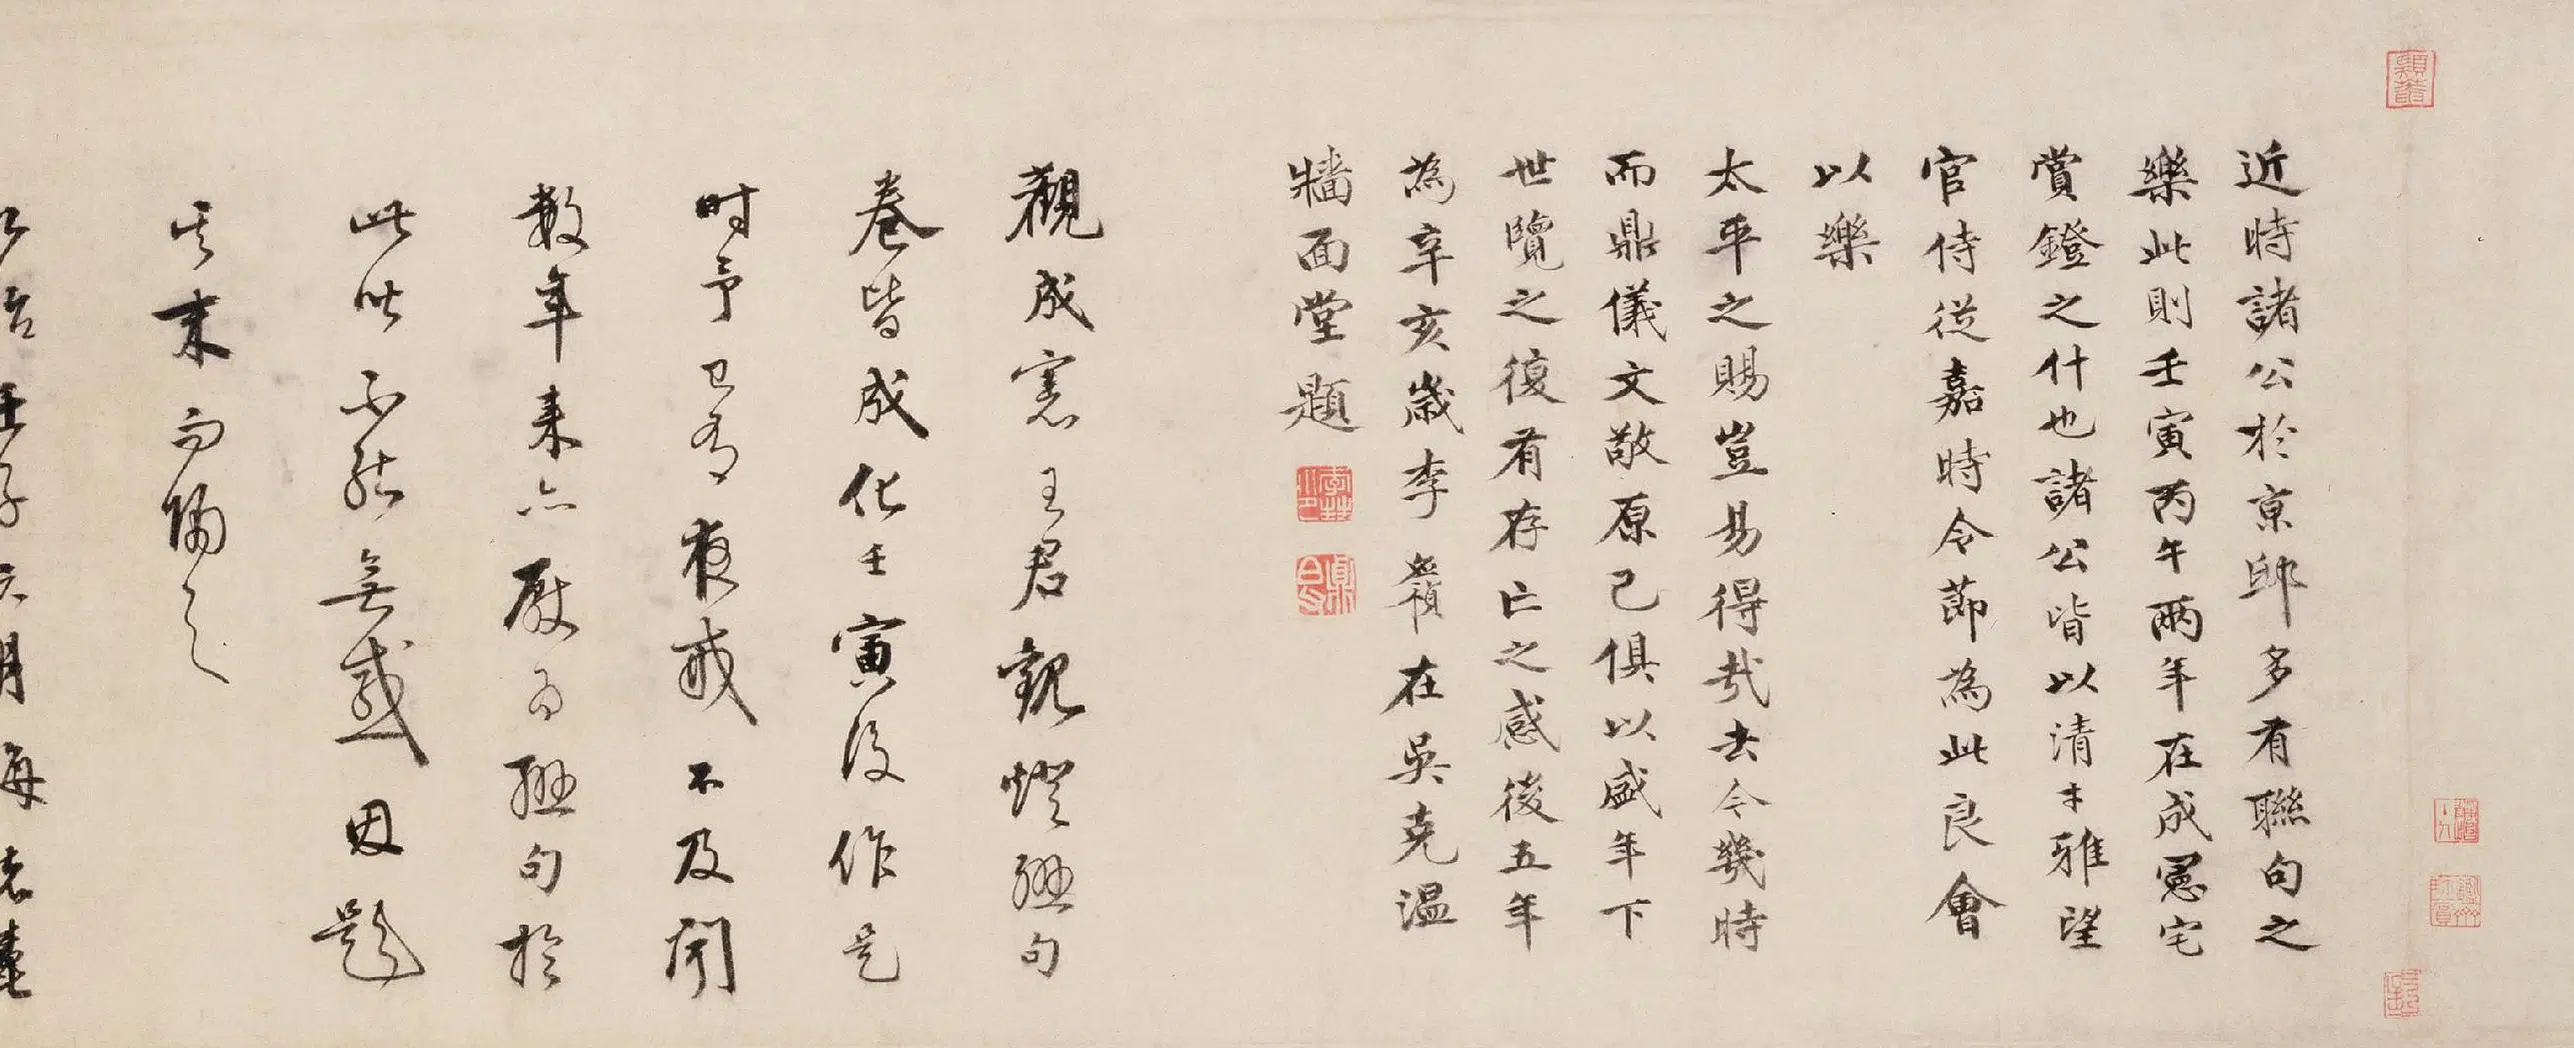 近時諸公於京邸多有聯句之
樂此則壬寅丙午兩年在成憲宅
賞鐙之什也諸公皆以清才雅望
官侍從嘉時令節為此良會
以樂
太平之賜豈易得哉去今幾時
而鼎儀文敬原己俱以盛年下
世覽之復有存亡之感後五年
為辛亥歲李在吳克溫
牆面堂題
觀成憲王君觀燈聯句
卷皆成化壬寅後作是
时予已有夜戒不及閑
數年来亦厭為聯句於
此皆不能無感因題
其末而歸之
治壬子六月